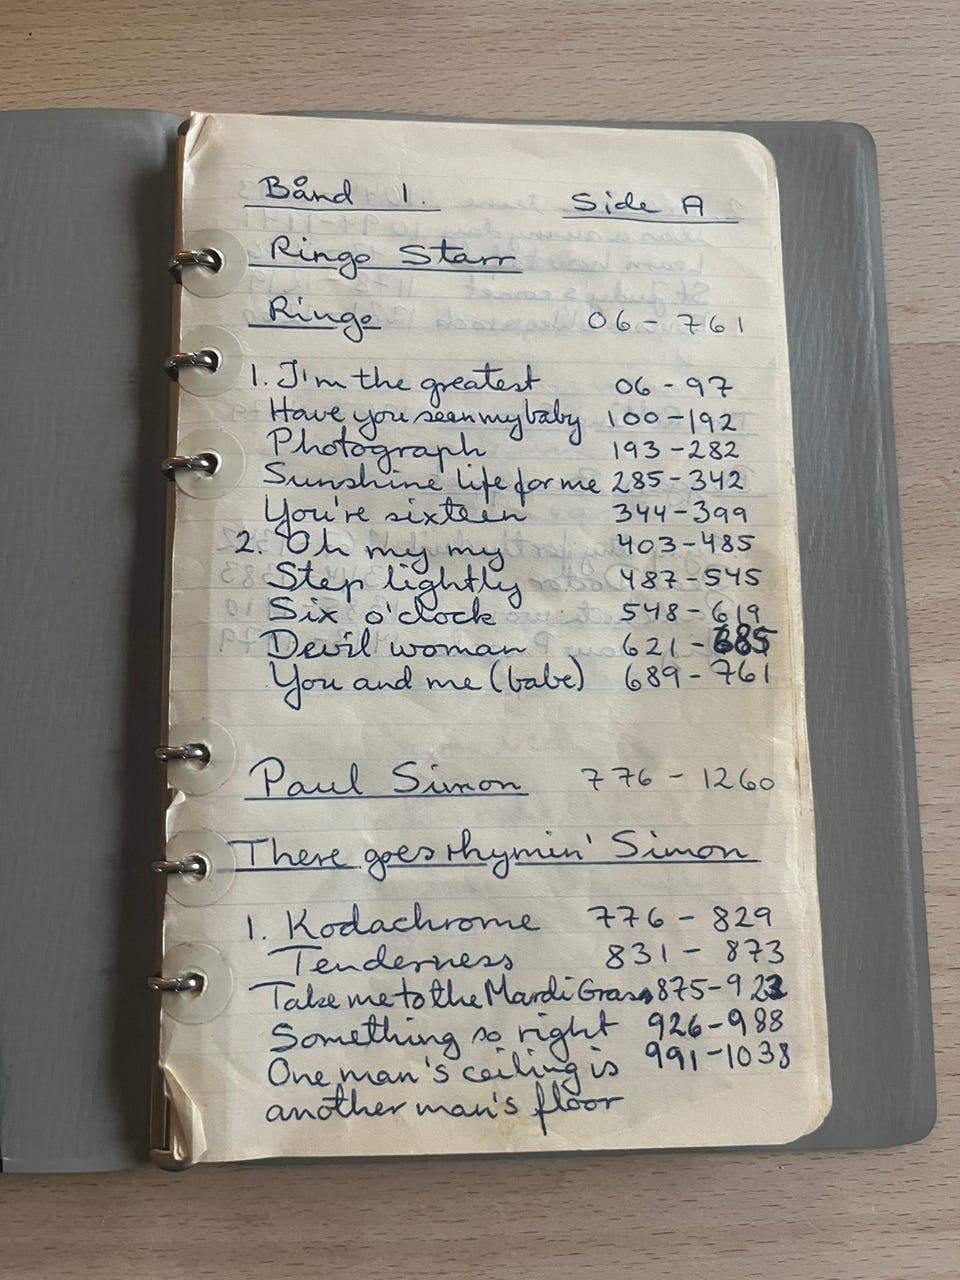 Bånd 1. Side A
Ringo Starr
Ringo 06 - 761
1. I'm the greatest 06 - 97
Have you seen my baby 100 - 192
Photograph 193 - 282
Sunshine life for me 285 - 342
You're sixteen 344 - 399
2. Oh my my 403 - 485
Step lightly 487 - 545
Six o'clock 548 - 619
Devil woman 621 - 685
You and me (babe) 689 - 761
Paul Simon 776 - 1260
There goes rhymin' Simon
1. Kodachrome 776 - 829
Tenderness 831 - 873
Take me to the Mardi Gras 875 - 923
Something so right 926 - 988
One man's ceiling is 991 - 1038
another man's floor